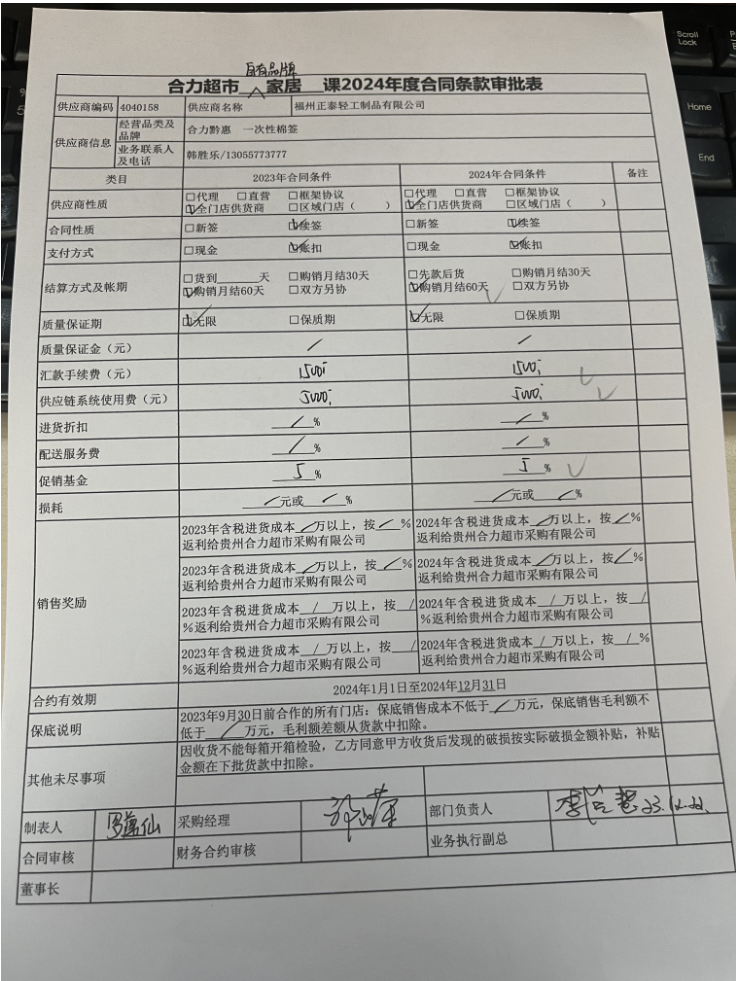 自有品牌
合力超市 家居 课2024年度合同条款审批表
供应商编码 4040158 供应商名称 福州正泰轻工制品有限公司
供应商信息 经营品类及品牌 合力黔惠 一次性棉签
业务联系人及电话 韩胜乐/13055773777
类目 2023年合同条件 2024年合同条件 备注
供应商性质 □代理 □直营 □框架协议 □代理 □直营 □框架协议
☑全门店供货商 □区域门店（ ） ☑全门店供货商 □区域门店（ ）
合同性质 □新签 ☑续签 □新签 ☑续签
支付方式 □现金 ☑账扣 □现金 ☑账扣
结算方式及帐期 □货到______天 □购销月结30天 □先款后货 □购销月结30天
☑购销月结60天 □双方另协 ☑购销月结60天 □双方另协
质量保证期 ☑无限 □保质期 ☑无限 □保质期
质量保证金（元） / /
汇款手续费（元） 1500 1500
供应链系统使用费（元） 5000 5000
进货折扣 / % / %
配送服务费 / % / %
促销基金 5 % 5 %
损耗 / 元或 / % / 元或 / %
销售奖励
2023年含税进货成本 / 万以上，按 / % 2024年含税进货成本 / 万以上，按 / %
返利给贵州合力超市采购有限公司 返利给贵州合力超市采购有限公司
2023年含税进货成本 / 万以上，按 / % 2024年含税进货成本 / 万以上，按 / %
返利给贵州合力超市采购有限公司 返利给贵州合力超市采购有限公司
2023年含税进货成本 / 万以上，按 / 2024年含税进货成本 / 万以上，按 /
%返利给贵州合力超市采购有限公司 %返利给贵州合力超市采购有限公司
2023年含税进货成本 / 万以上，按 / 2024年含税进货成本 / 万以上，按 / %
%返利给贵州合力超市采购有限公司 返利给贵州合力超市采购有限公司
合约有效期 2024年1月1日至2024年12月31日
保底说明 2023年9月30日前合作的所有门店：保底销售成本不低于 / 万元，保底销售毛利额不
低于 / 万元，毛利额差额从货款中扣除。
其他未尽事项 因收货不能每箱开箱检验，乙方同意甲方收货后发现的破损按实际破损金额补贴，补贴
金额在下批货款中扣除。
制表人 采购经理 部门负责人 23.12.22.
合同审核 财务合约审核 业务执行副总
董事长
Scroll
Lock
Home
End